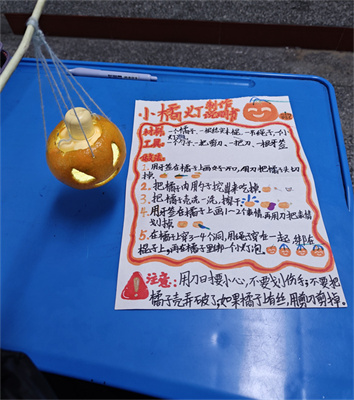 小橘灯制作说明书
材料：一个橘子、一根结实木棍、一条绳子、一个小
灯泡
工具：一个勺子、一把剪刀、一把刀、一根牙签
做法：
1. 用牙签在橘子上画个开口，用刀把橘子头切
掉
2. 把橘子肉用勺子挖出来吃掉
3. 把橘子壳洗一洗，擦干
4. 用牙签在橘子上画1～2个表情，再用刀把表情
划掉
5. 在橘子上穿3~4个洞，用绳子穿在一起绑在
棍子上，再在橘子里绑一个小灯泡
注意：用刀口要小心，不要划伤手，不要把
橘子壳弄破了，如果橘子有丝，用剪刀剪掉。